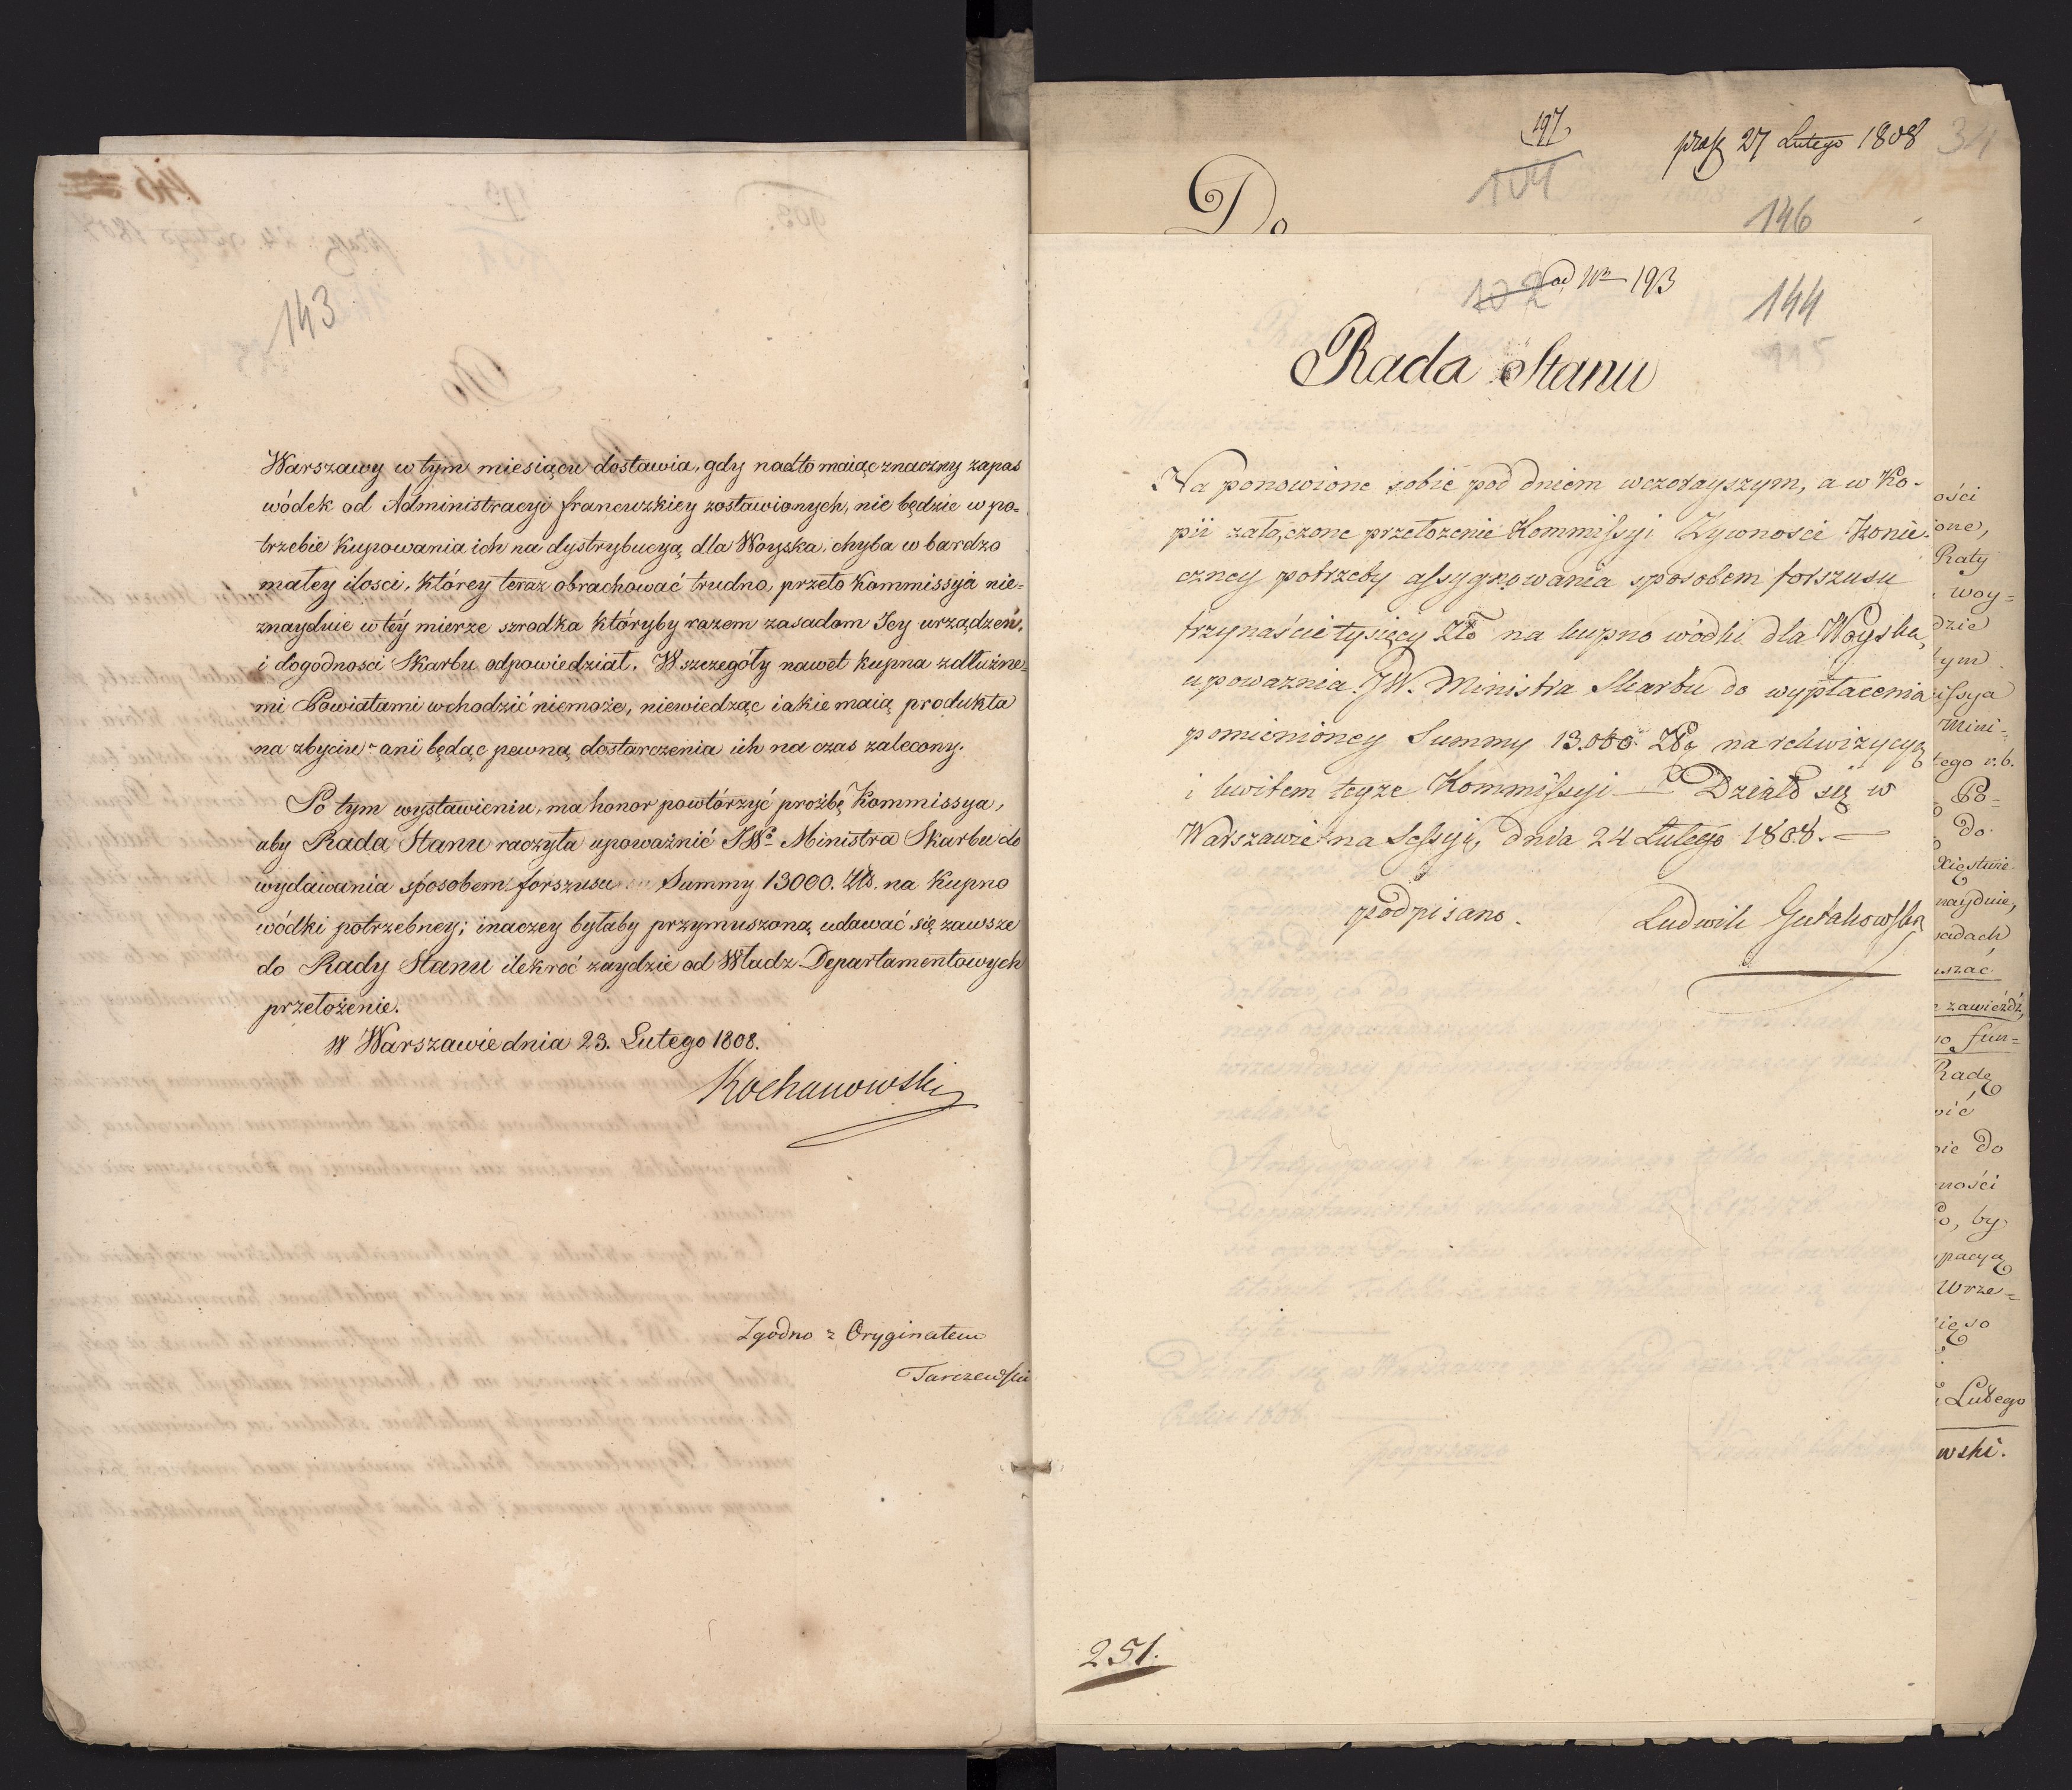 143
Warszawy w tym miesiącu dostawia, gdy nadto maiąc znaczny zapas
wódek od Administracyi francuzkiey zostawionych, nie będzie w po=
trzebie kupowania ich na dystrybucyą dla Woyska, chyba w bardzo
małey ilosci, którey teraz obrachować trudno, przeto Kommissyja nie=
znayduie w téy mierze szrodka któryby razem zasadom Jey urządzeń,
i dogodnosci Skarbu odpowiedział. W szczegóły nawet kupna z dłużne=
mi Powiatami wchodzić niemoże, niewiedząc iakie maią produkta
na zbyciu ani będąc pewną dostarczenia ich na czas zalecony.
Po tym wystawieniu, ma honor powtórzyć prozbę Kommissya,
aby Rada Stanu raczyła upoważnić JWo Ministra Skarbu do
wydawania sposobem forszusu Summy 13000. Złł. na kupno
wódki potrzebney; inaczey byłaby przymuszoną udawać się zawsze
do Rady Stanu ilekroć zaydzie od Władz Departamentowych
przełożenie.
W Warszawie dnia 23. Lutego 1808.
Kochanowski
Zgodno z Oryginałem
Tarczewski
197
104
praes 27 Lutego 1808
34
Do
146
102 ad Nm 193
144
115
Rada Stanu
Na ponowione sobie pod dniem wczorayszym, a w Ko-
pii załączone przełożenie Kommissyi Zywnosci Konie-
czney potrzeby assygnowania sposobem forszusu
trzynaście tysięcy Złł na kupno wódki dla Woyska,
upoważnia JW. Ministra Skarbu do wypłacenia
pomienioney Summy 13.000 Złł na rekwizycyą
i kwitem teyze Kommissyi — Działo się w
Warszawie na Sessyi, dnia 24 Lutego 1808. —
podpisano.
Ludwik Gutakowski
251.
ości
one,
Raty
woy=
dzie
tym
issya
Mini=
tego r.b.
Po=
do
Xięstwie
nayduie,
sadach
uszac
zawieźdź,
fun=
Radę
wić
nie do
ności
by
pacyą
Wrze=
Lutego
wski.